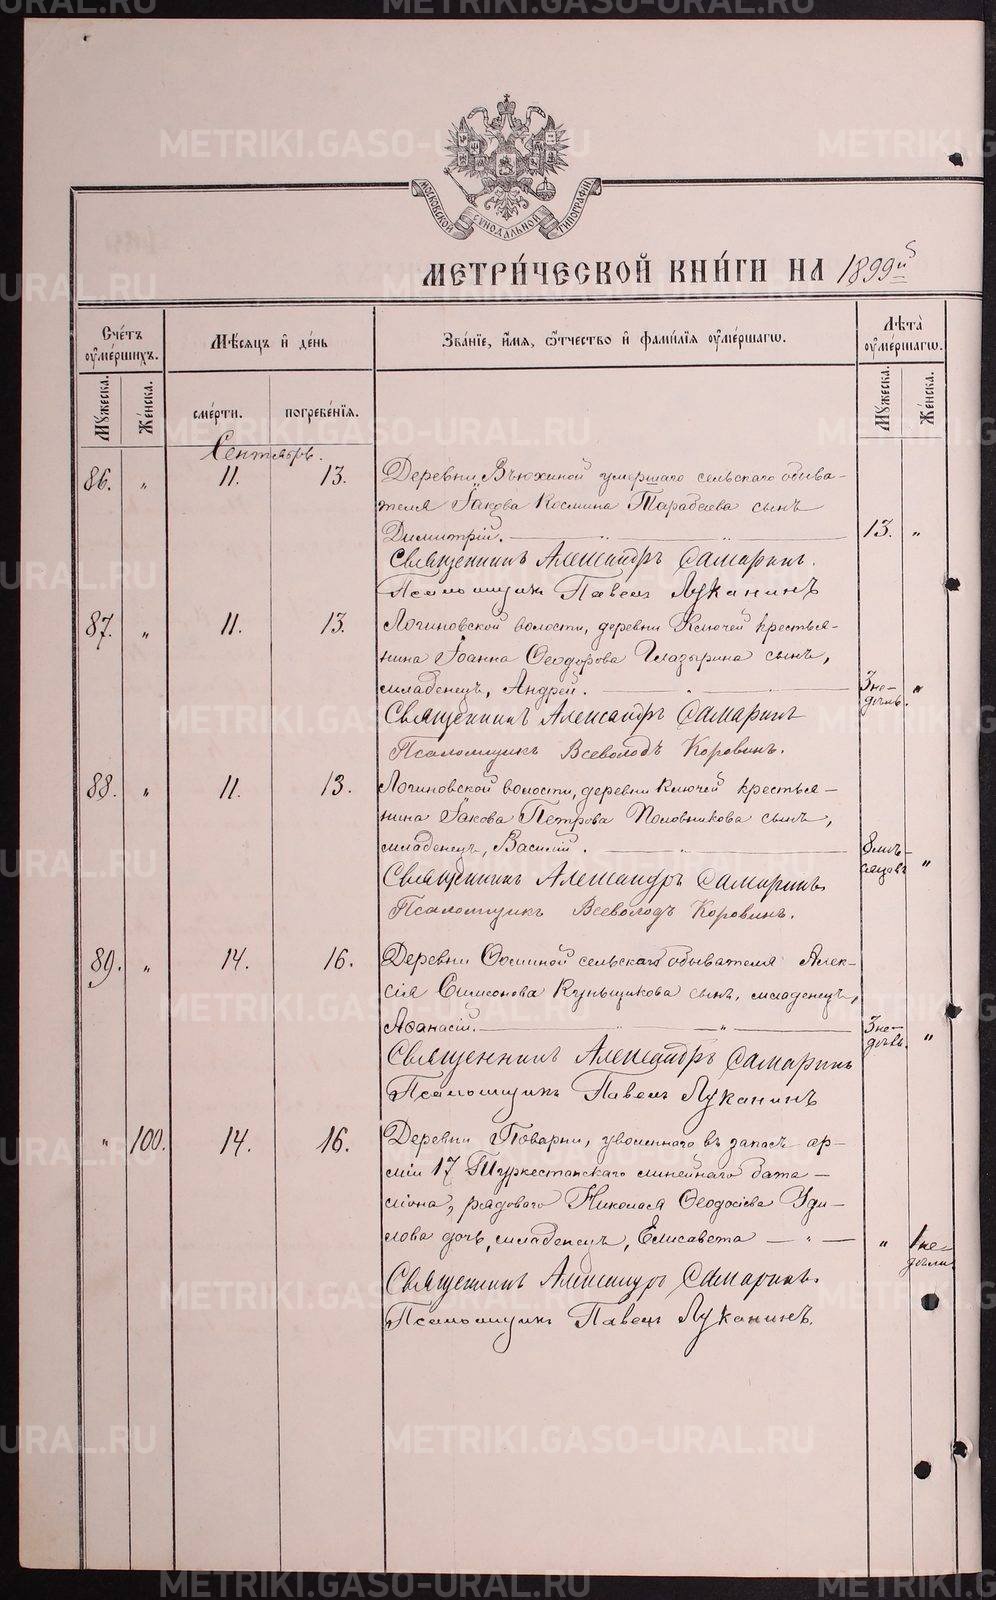 МОСКОВСКОЙ СѴНОДАЛЬНОЙ ТИПОГРАФІИ.
МЕТРИ́ЧЕСКОЙ КНИ́ГИ НА 1899й
Сче́тъ ᲂу҆ме́ршихъ.
Мѣ́сяцъ и҆ де́нь
Зва́нїе, и҆́мя, ѻ҆́тчество и҆ фами́лїя ᲂу҆ме́ршагѡ.
Лѣ́та ᲂу҆ме́ршагѡ.
Мꙋ́жеска.
Же́нска.
сме́рти.
погребе́нїя.
Мꙋ́жеска.
Же́нска.
Сентябрь.
86. " 11. 13. Деревни Вьюхиной умершаго сельскаго обыва-
теля Іакова Космина Тарабаева сынъ
Димитрій. 13. "
Священникъ Александръ Самаринъ.
Псаломщикъ Павелъ Луканинъ
87. " 11. 13. Логиновской волости, деревни Ключей крестья-
нина Іоанна Ѳеодорова Глазырина сынъ,
младенецъ, Андрей. 3 не-
дѣль. "
Священникъ Александръ Самаринъ
Псаломщикъ Всеволодъ Коровинъ.
88. " 11. 13. Логиновской волости, деревни Ключей крестья-
нина Іакова Петрова Половникова сынъ,
младенецъ, Василій. 8 мѣ-
сяцовъ "
Священникъ Александръ Самаринъ.
Псаломщикъ Всеволодъ Коровинъ.
89. " 14. 16. Деревни сельскаго обывателя Алек-
сія Симеонова Куньщикова сынъ, младенецъ,
Аѳанасій. 3 не-
дѣль. "
Священникъ Александръ Самаринъ
Псаломщикъ Павелъ Луканинъ
" 100. 14. 16. Деревни Поварни, уволеннаго въ запасъ ар-
міи 17 Туркестанскаго линейнаго бата-
ліона, рядового Николая Ѳеодосіева Уди-
лова дочь, младенецъ, Елисавета " " 1 не-
дѣли
Священникъ Александръ Самаринъ.
Псаломщикъ Павелъ Луканинъ.
METRIKI.GASO-URAL.RU